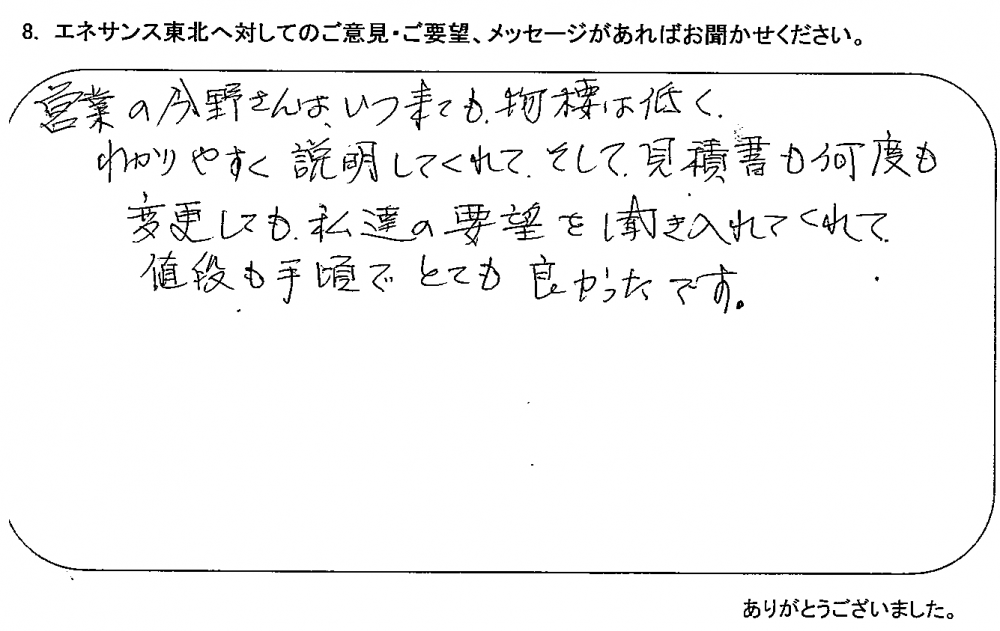 8. エネサンス東北へ対してのご意見・ご要望、メッセージがあればお聞かせください。
営業の今野さんは、いつ来ても、物棲は低く、
わかりやすく説明してくれて、そして、見積書も何度も
変更しても、私達の要望を聞き入れてくれて、
値段も手頃でとても良かったです。
ありがとうございました。